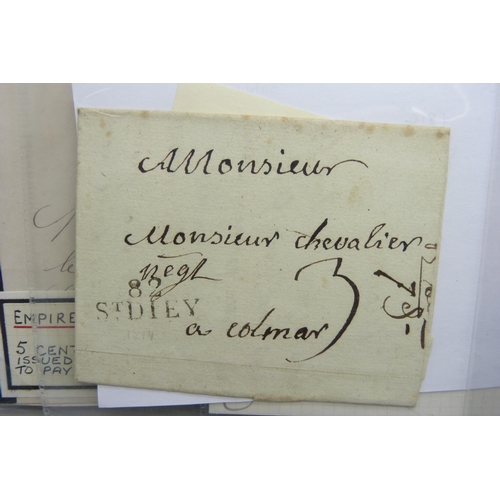 A Monsieur
Monsieur chevalier
Negt
82
ST DIEY
a colmar
3
EMPIRE
5 CENT
ISSUED
TO PAY